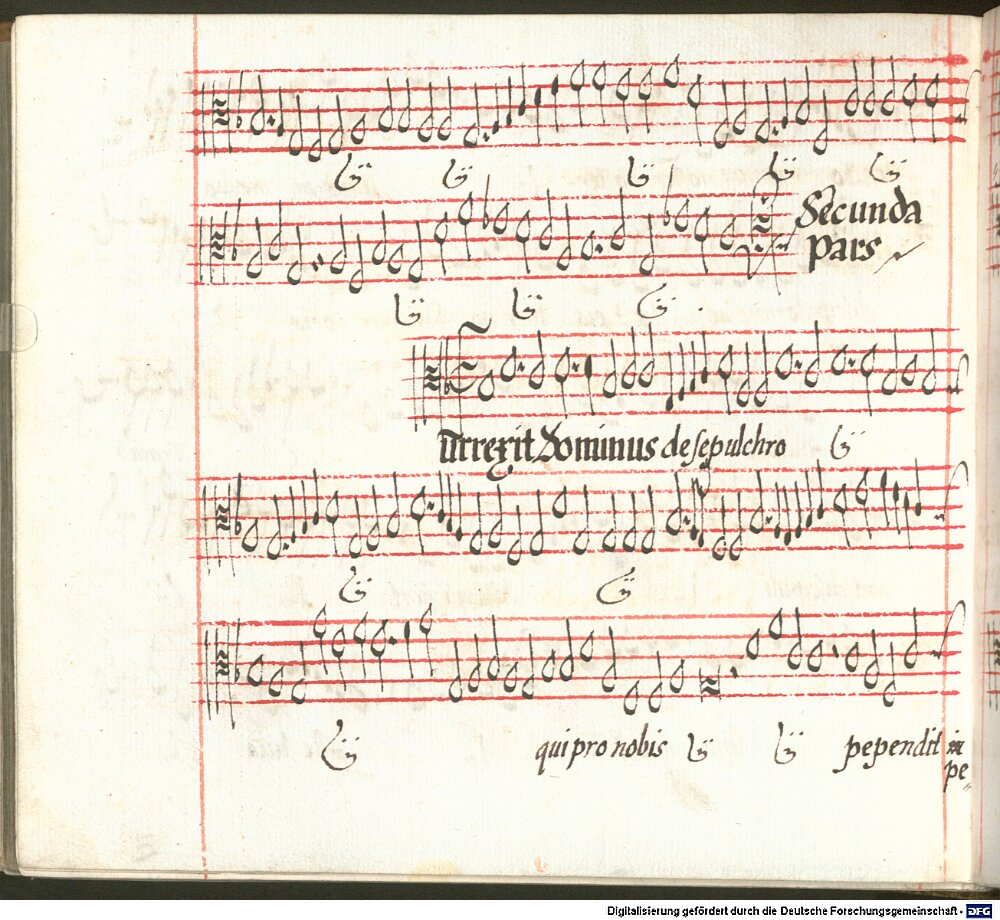 Secunda
pars
urrexit Dominus de sepulchro
qui pro nobis
pependit in
pe=
Digitalisierung gefördert durch die Deutsche Forschungsgemeinschaft - DFG